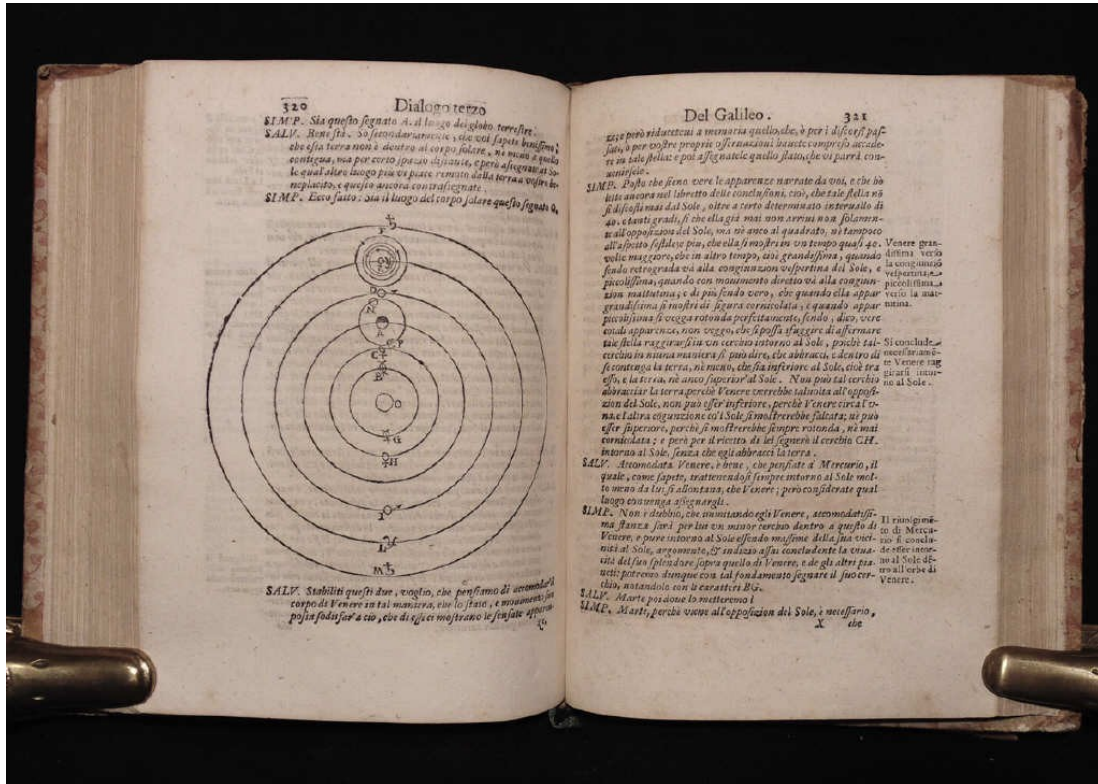 320 Dialogo terzo
SIMP. Sia questo segnato A. il luogo del globo terrestre.
SALV. Bene stà. Sò secondariamente, che voi sapete benissimo,
che essa terra non è dentro al corpo solare, nè meno a quello
contigua, ma per certo spazio distante, e però assegnate al So-
le qual altro luogo più vi piace remoto dalla terra a vostro be-
neplacito, e questo ancora contrassegnate.
SIMP. Ecco fatto: Sia il luogo del corpo solare questo segnato O.
N
A
C
B
O
G
H
I
SALV. Stabiliti questi due, voglio, che pensiamo di accomodar il
corpo di Venere in tal maniera, che lo stato, e movimento suo
possa sodisfar a ciò, che di essi ci mostrano le sensate apparen-
ze,
Del Galileo. 321
ze; e però riducetevi a memoria quello, che, ò per i discorsi pas-
sati, ò per vostre proprie osservazioni havete compreso accade-
re in tale stella: e poi assegnatele quello stato, che vi parrà con-
venirsele.
SIMP. Posto che sieno vere le apparenze narrate da voi, e che hò
lette ancora nel libretto delle conclusioni, cioè, che tale stella nō
si discosti mai dal Sole, oltre a certo determinato intervallo di
40. e tanti gradi, sì che ella già mai non arrivi non solamen-
te all'opposizion del Sole, ma nè anco al quadrato, nè tampoco
all'aspetto sestile; e più, che ella si mostri in vn tempo quasi 40.
volte maggiore, che in altro tempo, cioè grandissima, quando
sendo retrograda và alla congiunzion vespertina del Sole, e
piccolissima, quando con movimento diretto và alla congiun-
zion mattutina; e di più sendo vero, che quando ella appar
grandissima si mostri di figura cornicolata, e quando appar
piccolissima si vegga rotonda perfettamente, sendo, dico, vere
cotali apparenze, non veggo, che si possa sfuggire di affermare
tale stella raggirarsi in vn cerchio intorno al Sole, poichè tal
cerchio in niuna maniera si può dire, che abbracci, e dentro di
se contenga la terra, nè meno, che sia inferiore al Sole, cioè tra
esso, e la terra, nè anco superior al Sole. Non può tal cerchio
abbracciar la terra, perchè Venere verrebbe talvolta all'opposi-
zion del Sole, non può esser inferiore, perchè Venere circa l'v-
na, e l'altra cōgiunzione co'l Sole si mostrerebbe falcata; nè può
esser superiore, perchè si mostrerebbe sempre rotonda, nè mai
cornicolata; e però per il ricetto di lei segnerò il cerchio CH.
intorno al Sole, senza che egli abbracci la terra.
SALV. Accomodata Venere, è bene, che pensiate a Mercurio, il
quale, come sapete, trattenendosi sempre intorno al Sole mol-
to meno da lui si allontana, che Venere; però considerate qual
luogo convenga assegnargli.
SIMP. Non è dubbio, che imitando egli Venere, accomodatissi-
ma stanza sarà per lui vn minor cerchio dentro a questo di
Venere, e pure intorno al Sole essendo massime della sua vici-
nità al Sole, argomento, & indizio assai concludente la viva-
cità del suo splendore sopra quello di Venere, e de gli altri pia-
neti: potremo dunque con tal fondamento segnare il suo cer-
chio, notandolo con li caratteri BG.
SALV. Marte poi doue lo metteremo?
SIMP. Marte, perchè viene all'opposizion del Sole, è necessario,
X che
Venere gran-
dissima verso
la congiunzio
vespertina, e
piccolissima
verso la mat-
tutina.
Si conclude
necessariamē-
te Venere rag
girarsi intor-
no al Sole.
Il rivolgimē-
to di Mercu-
rio si conclu-
de esser intor-
no al Sole dē-
tro all'orbe di
Venere.